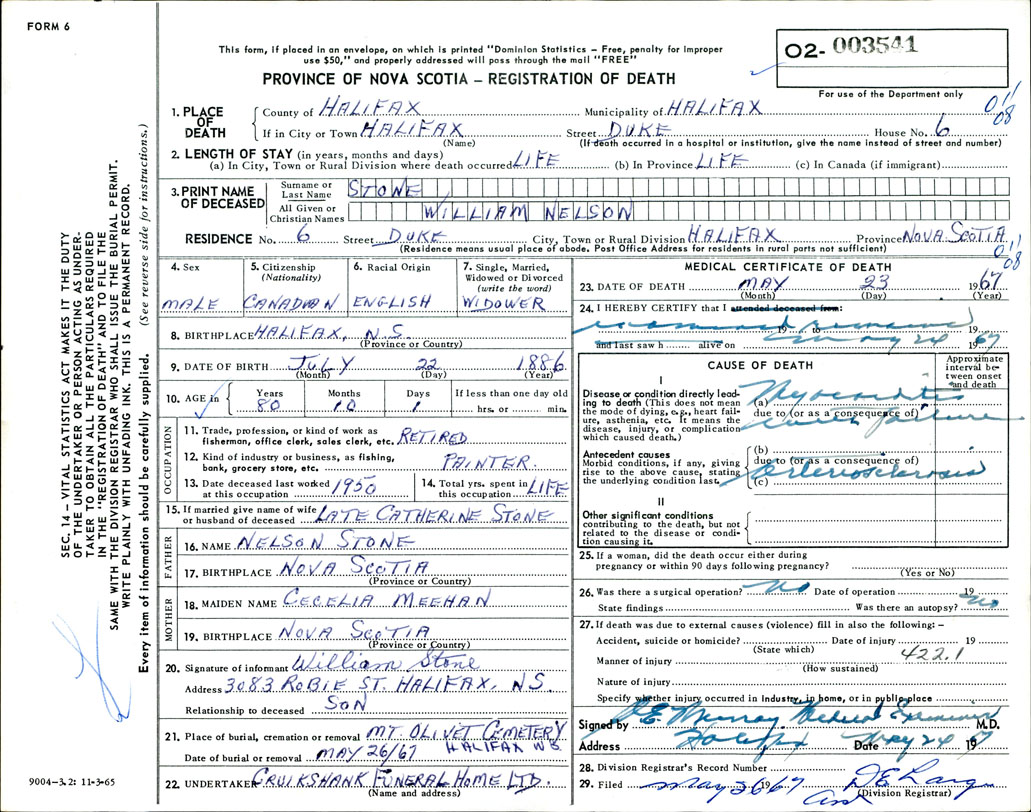 FORM 6
This form, if placed in an envelope, on which is printed "Dominion Statistics – Free, penalty for improper
use $50," and properly addressed will pass through the mail "FREE"
PROVINCE OF NOVA SCOTIA – REGISTRATION OF DEATH
02- 003541
For use of the Department only
SEC. 14 – VITAL STATISTICS ACT MAKES IT THE DUTY
OF THE UNDERTAKER OR PERSON ACTING AS UNDER-
TAKER TO OBTAIN ALL THE PARTICULARS REQUIRED
IN THE "REGISTRATION OF DEATH" AND TO FILE THE
SAME WITH THE DIVISION REGISTRAR WHO SHALL ISSUE THE BURIAL PERMIT.
WRITE PLAINLY WITH UNFADING INK. THIS IS A PERMANENT RECORD.
Every item of information should be carefully supplied. (See reverse side for instructions.)
1. PLACE OF DEATH
County of HALIFAX Municipality of HALIFAX
If in City or Town HALIFAX Street DUKE House No. 6
(Name) (If death occurred in a hospital or institution, give the name instead of street and number)
2. LENGTH OF STAY (in years, months and days)
(a) In City, Town or Rural Division where death occurred LIFE (b) In Province LIFE (c) In Canada (if immigrant)
3. PRINT NAME OF DECEASED
Surname or Last Name STONE
All Given or Christian Names WILLIAM NELSON
RESIDENCE No. 6 Street DUKE City, Town or Rural Division HALIFAX Province NOVA SCOTIA
(Residence means usual place of abode. Post Office Address for residents in rural parts not sufficient)
4. Sex MALE
5. Citizenship (Nationality) CANADIAN
6. Racial Origin ENGLISH
7. Single, Married, Widowed or Divorced (write the word) WIDOWER
8. BIRTHPLACE HALIFAX, N.S.
(Province or Country)
9. DATE OF BIRTH JULY 22 1886
(Month) (Day) (Year)
10. AGE in Years 80 Months 10 Days 1 If less than one day old hrs. or min.
OCCUPATION
11. Trade, profession, or kind of work as
fisherman, office clerk, sales clerk, etc. RETIRED
12. Kind of industry or business, as fishing,
bank, grocery store, etc. PAINTER.
13. Date deceased last worked at this occupation 1950
14. Total yrs. spent in this occupation LIFE
15. If married give name of wife
or husband of deceased LATE CATHERINE STONE
FATHER
16. NAME NELSON STONE
17. BIRTHPLACE NOVA SCOTIA
(Province or Country)
MOTHER
18. MAIDEN NAME CECELIA MEEHAN
19. BIRTHPLACE NOVA SCOTIA
(Province or Country)
20. Signature of informant William Stone
Address 3083 ROBIE ST. HALIFAX, N.S.
Relationship to deceased SON
21. Place of burial, cremation or removal MT OLIVET CEMETERY
HALIFAX
Date of burial or removal MAY 26/67
22. UNDERTAKER CRUIKSHANK FUNERAL HOME LTD.
(Name and address)
9004–3.2: 11-3-65
MEDICAL CERTIFICATE OF DEATH
23. DATE OF DEATH MAY 23 1967
(Month) (Day) (Year)
24. I HEREBY CERTIFY that I attended deceased from:
19 to 19
and last saw h alive on May 24 1967
CAUSE OF DEATH
Approximate interval between onset and death
I
Disease or condition directly lead-
ing to death (This does not mean
the mode of dying, e.g., heart fail-
ure, asthenia, etc. It means the
disease, injury, or complication
which caused death.)
(a) Myocarditis
due to (or as a consequence of)
failure
Antecedent causes
Morbid conditions, if any, giving
rise to the above cause, stating
the underlying condition last.
(b)
due to (or as a consequence of)
(c) Arteriosclerosis
II
Other significant conditions
contributing to the death, but not
related to the disease or condi-
tion causing it.
25. If a woman, did the death occur either during
pregnancy or within 90 days following pregnancy?
(Yes or No)
26. Was there a surgical operation? No Date of operation 19
State findings Was there an autopsy? No
27. If death was due to external causes (violence) fill in also the following: –
Accident, suicide or homicide? Date of injury 19
(State which)
422.1
Manner of injury
(How sustained)
Nature of injury
Specify whether injury occurred in industry, in home, or in public place
Signed by Murray Medical Examiner M.D.
Address Halifax Date May 24 1967
28. Division Registrar's Record Number
29. Filed May 26 1967
(Division Registrar)